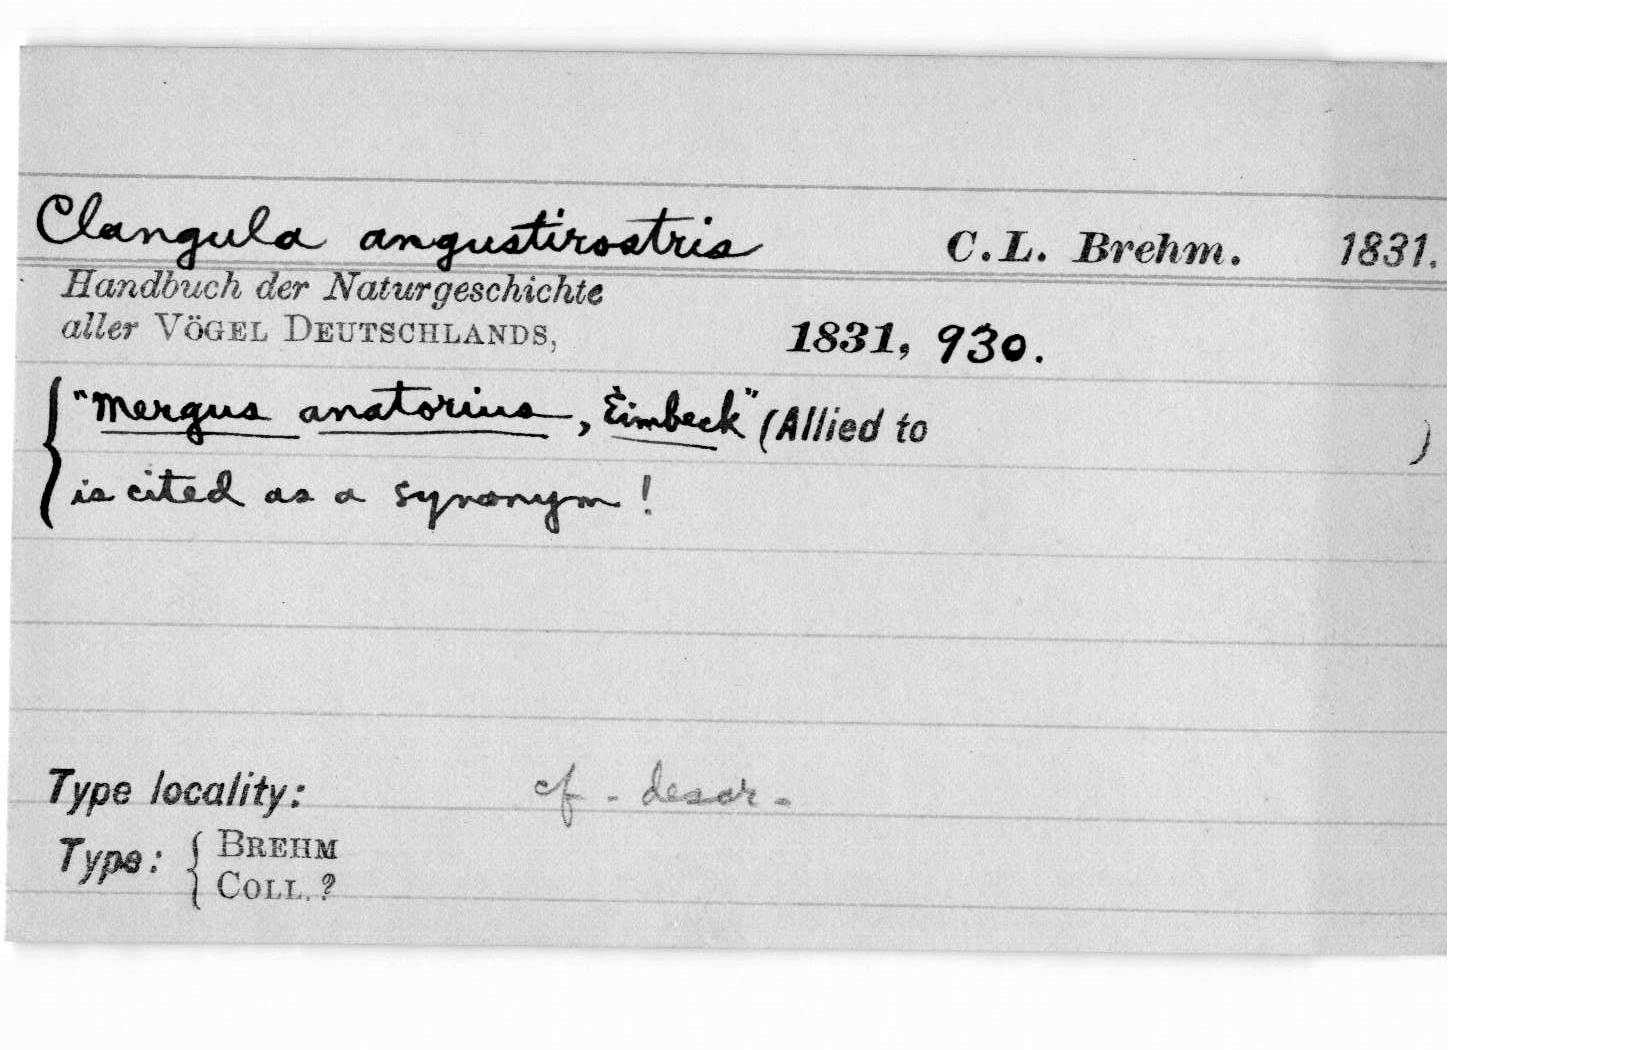 Clangula angustirostris C.L. Brehm. 1831.
Handbuch der Naturgeschichte
aller VÖGEL DEUTSCHLANDS, 1831, 930.
"Mergus anatorius, Eimbeck" (Allied to )
is cited as a synonym!
Type locality: cf. descr.
Type: { BREHM
COLL. ?